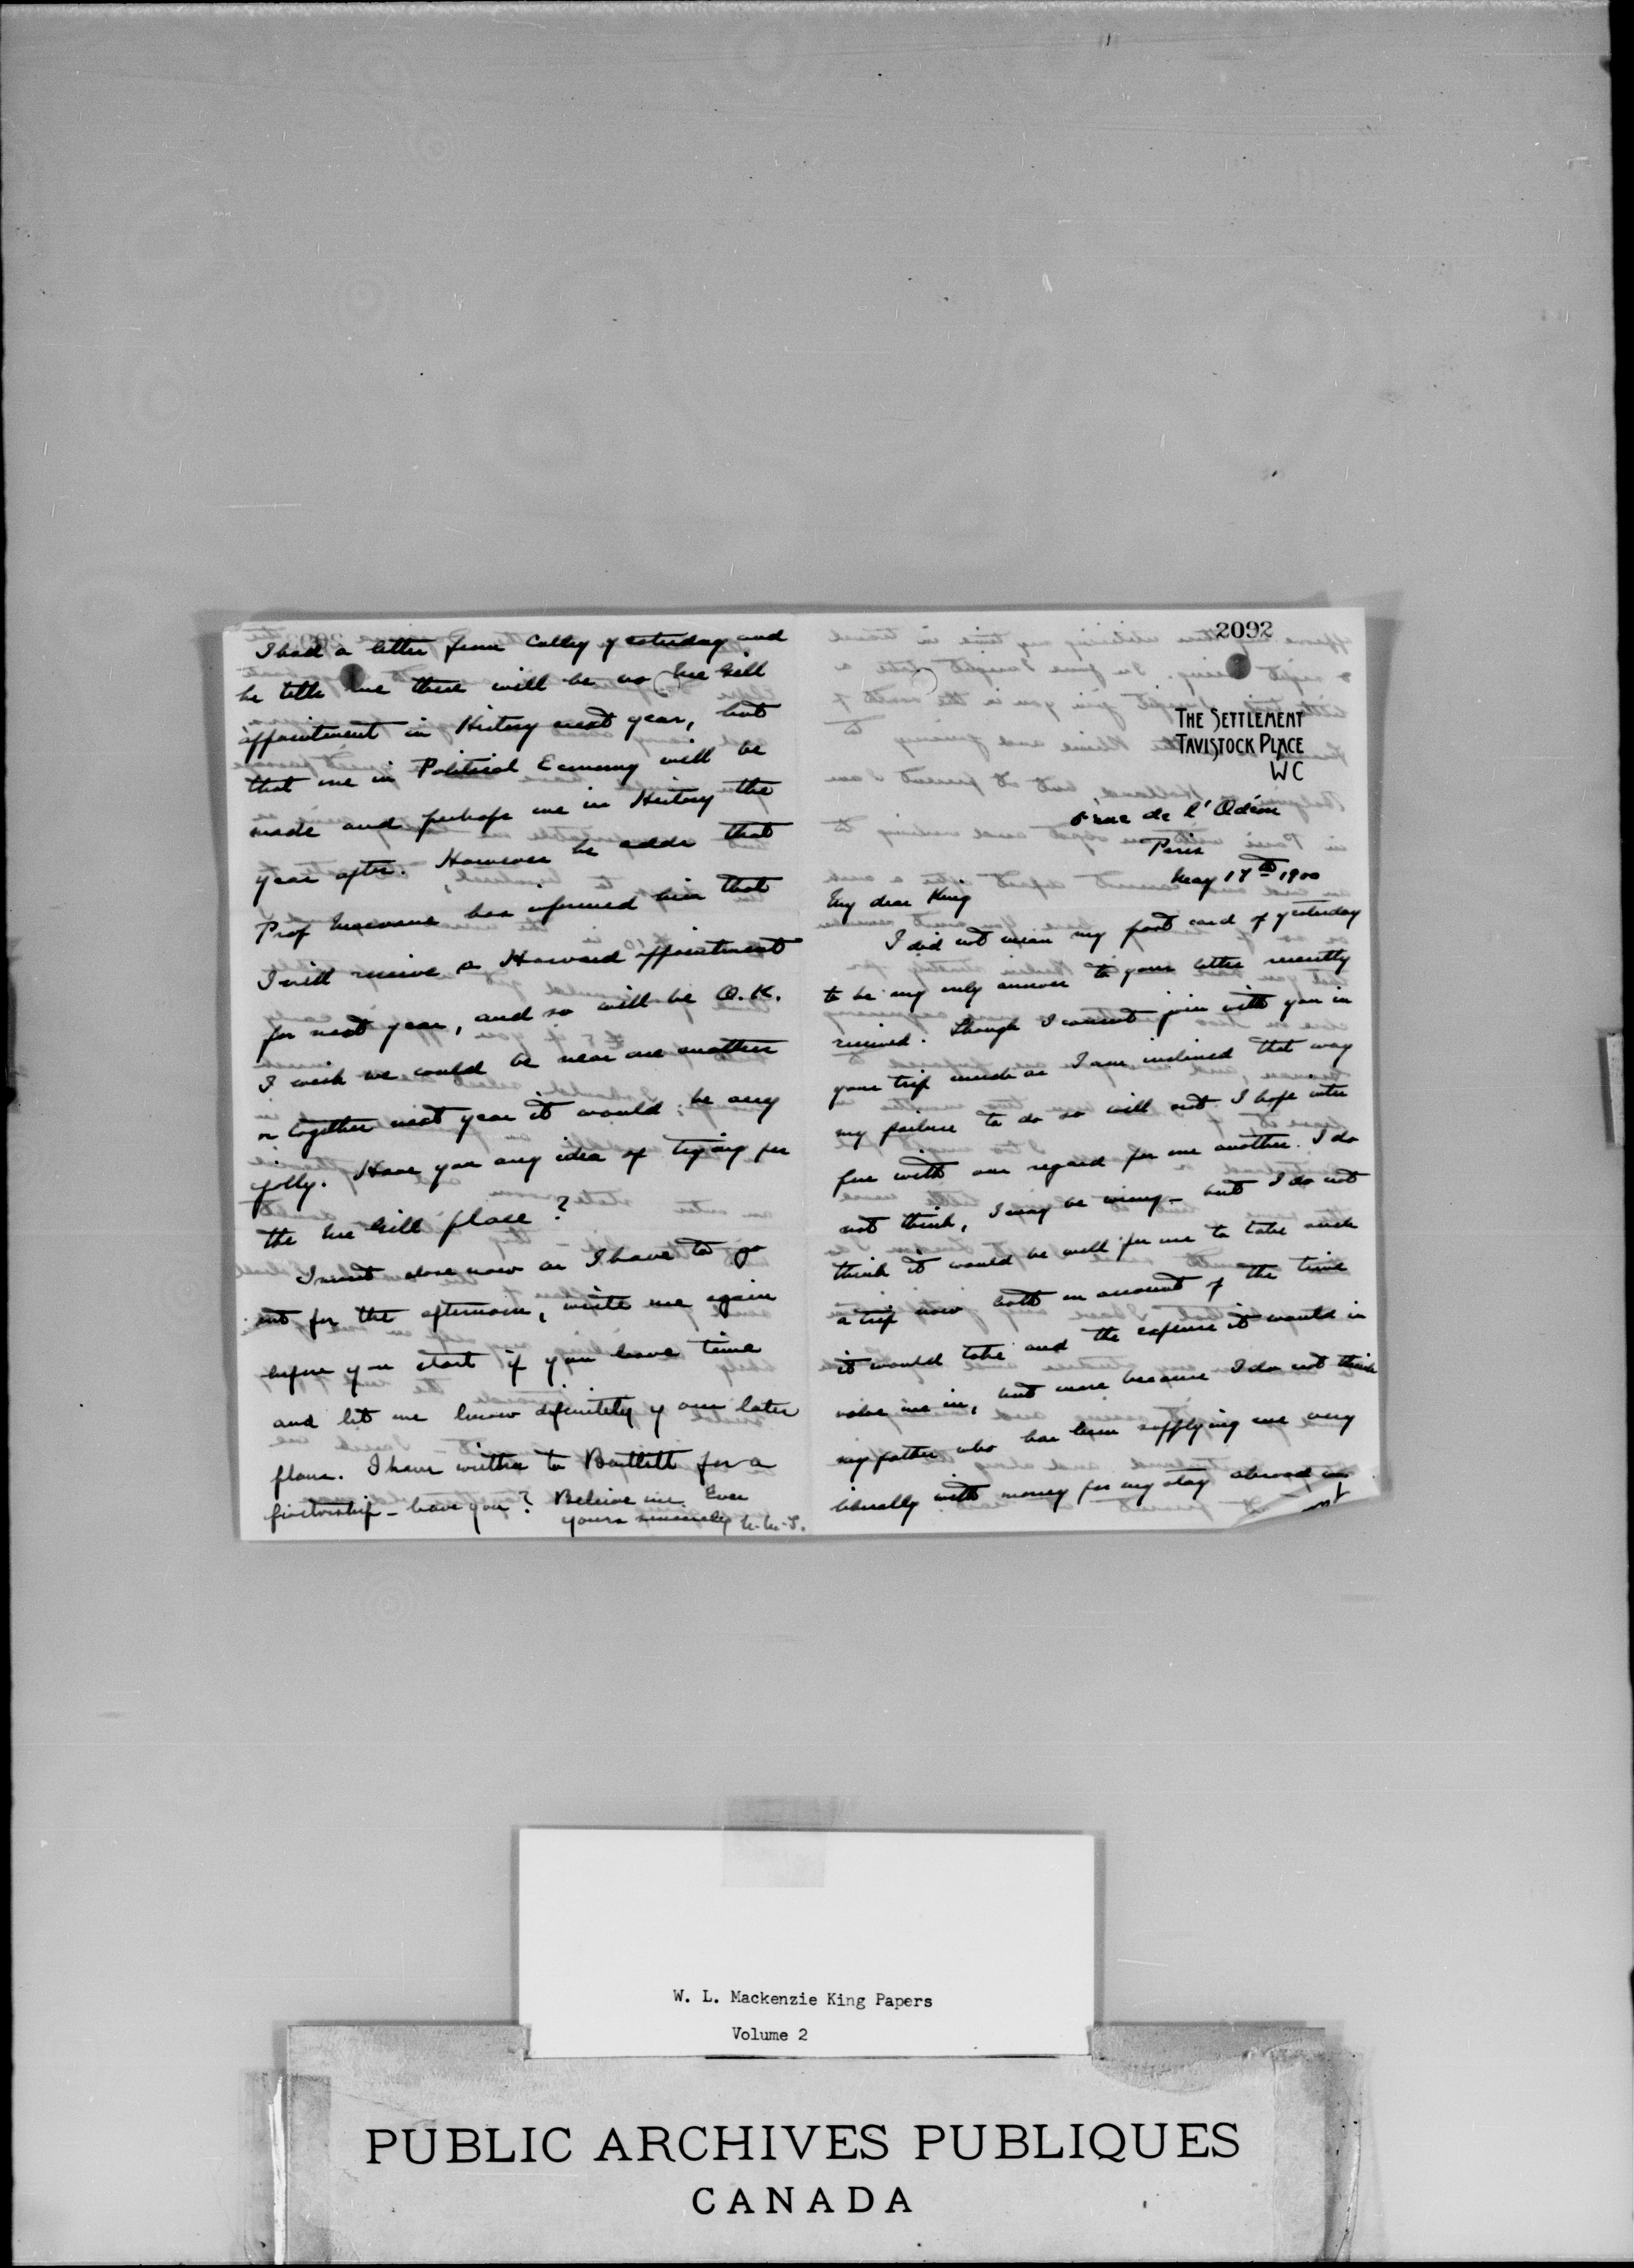 2092
THE SETTLEMENT
TAVISTOCK PLACE
WC
rue de l'Odéon
Paris
May 17th 1900
My dear King
I did not mean my post card of yesterday
to be my only answer to your letter recently
received. Though I cannot join with you in
your trip much as I am inclined that way
my failure to do so will not I hope inter
fere with our regard for one another. I do
not think, I may be wrong - but I do not
think it would be well for me to take such
a trip now both on account of the time
it would take and the expense it would in
volve me in, but more because I do not think
my father who has been supplying me very
liberally with money for my stay abroad
I had a letter from Colley yesterday and
he tells me there will be no McGill
appointment in History next year, but
that one in Political Economy will be
made and perhaps one in History the
year after. However he adds that
Prof Macvane has informed him that
I will receive a Harvard appointment
for next year, and so will be O.K.
I wish we could be near one another
or together next year it would be very
jolly. Have you any idea of trying for
the McGill place?
I must close now as I have to go
out for the afternoon, write me again
before you start if you have time
and let me know definitely your later
plans. I have written to Bartlett for a
proctorship - have you? Believe me Ever
yours sincerely
W. L. Mackenzie King Papers
Volume 2
PUBLIC ARCHIVES PUBLIQUES
CANADA